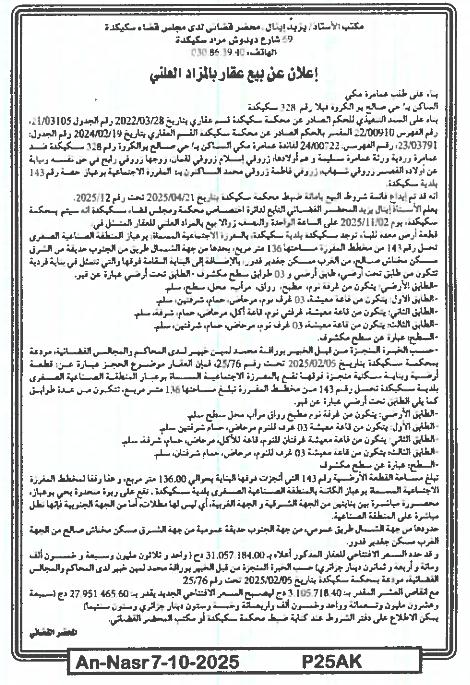 مكتب الأستاذ/ يزيد إينال، محضر قضائي لدى مجلس قضاء سكيكدة
59 شارع ديدوش مراد سكيكدة
الهاتف: 030.86.39.40
إعلان عن بيع عقار بالمزاد العلني
بناء على طلب عمامرة مكي
الساكن بـ/ حي صالح بو الكروة فيلا رقم 328 سكيكدة
بناء على السند التنفيذي للحكم الصادر عن محكمة سكيكدة قسم عقاري بتاريخ 2022/03/28 رقم الجدول 21/03105،
رقم الفهرس 22/00910 المفسر بالحكم الصادر عن محكمة سكيكدة القسم العقاري بتاريخ 2024/02/19 رقم الجدول:
23/03791، رقم الفهرس: 24/00722 لفائدة عمامرة مكي الساكن بـ/ حي صالح بوالكروة رقم 328 سكيكدة ضد
عمامرة وردية ورثة عمامرة سليمة وهم أولادها: زروقي إسلام زروقي لقمان، وزوجها زروقي رابح في حق نفسه ونيابة
عن أولاده القصر زروقي شهاب، زروقي فاطمة زروقي محمد الساكنون بـ: المفرزة الاجتماعية بوعباز حصة رقم 143
بلدية سكيكدة.
أنه قد تم إيداع قائمة شروط البيع بأمانة ضبط محكمة سكيكدة بتاريخ 2025/04/21 تحت رقم 2025/12.
يعلم الأستاذ/ إينال يزيد المحضر القضائي التابع لدائرة اختصاص محكمة ومجلس قضاء سكيكدة أنه سيتم بمحكمة
سكيكدة، يوم 2025/11/02 على الساعة الواحدة والنصف زوالا بيع بالمزاد العلني للعقار المتمثل في
قطعة أرض معدة للبناء، توجد سكيكدة بلدية سكيكدة، بالمفرزة الاجتماعية المسماة: بوعباز المنطقة الصناعية الصغرى
تحمل رقم 143 من مخطط المفرزة مساحتها 136 متر مربع، يحدها من جهة الشمال طريق من الجنوب حديقة من الشرق
مسكن مخناش صالح، من الغرب مسكن جغدير قدور، بالإضافة إلى البناية المقامة فوقها والتي تتمثل في بناية فردية
تتكون من طابق تحت أرضي، طابق أرضي و 03 طوابق سطح مكشوف - الطابق تحت أرضي عبارة عن قبو.
-الطابق الأرضي: يتكون من غرفة نوم، مطبخ، رواق، مرآب، محل، سطح، سلم.
-الطابق الأول: يتكون من قاعة معيشة، 03 غرف نوم، مرحاض، حمام، شرفتين، سلم.
-الطابق الثاني: يتكون من قاعة معيشة، غرفتي نوم، قاعة أكل، مرحاض، حمام، شرفة، سلم.
-الطابق الثالث: يتكون من قاعة معيشة، 03 غرف نوم، مرحاض، حمام، شرفتين، سلم.
-السطح: عبارة عن سطح مكشوف.
-حسب الخبرة المنجزة من قبل الخبير بوراقة محمد لمين خبير لدى المحاكم والمجالس القضائية، مودعة
بمحكمة سكيكدة بتاريخ 2025/02/05 تحت رقم 25/76، فإن العقار موضوع الحجز عبارة عن: قطعة
أرضية وبناية سكنية منجزة فوقها تقع بالمفرزة الاجتماعية المسماة بوعباز المنطقة الصناعية الصغرى
بلدية سكيكدة تحمل رقم 143 من مخطط المفرزة تبلغ مساحتها 136 متر مربع، تتكون من عدة طوابق
كما يلي الطابق تحت أرضي عبارة عن قبو.
-الطابق الأرضي: يتكون من غرفة نوم مطبخ رواق مرآب محل سطح سلم.
-الطابق الأول: يتكون من قاعة معيشة 03 غرف للنوم، مرحاض، حمام شرفتين سلم.
-الطابق الثاني: يتكون من قاعة معيشة غرفتان للنوم، قاعة للأكل، مرحاض، حمام، شرفة سلم.
-الطابق الثالث: يتكون من قاعة معيشة 03 غرف للنوم، مرحاض، حمام شرفتان، سلم.
-السطح: عبارة عن سطح مكشوف
تبلغ مساحة القطعة الأرضية رقم 143 التي أنجزت فوقها البناية بحوالي 136.00 متر مربع، وهذا وفقا لمخطط المفرزة
الاجتماعية المسماة بوعباز الكائنة بالمنطقة الصناعية الصغرى بلدية سكيكدة. تقع على ربوة منحدرة بحي بوعباز،
محصورة مباشرة بين بنايتين من الجهة الشرقية و الجهة الغربية، أي ليس لها مطلات، أما من الجهة الجنوبية فإنها تطل
مباشرة على المنطقة الصناعية.
حدودها من جهة الشمال طريق عمومي، من جهة الجنوب حديقة عمومية من جهة الشرق مسكن مخناش صالح من الجهة
الغرب مسكن جغدير قدور.
و قد حدد السعر الافتتاحي للعقار المذكور أعلاه بـ 31.057.184.00 دج (واحد و ثلاثون مليون وسبعة و خمسون ألف
ومائة و أربعة و ثمانون دينار جزائري) حسب الخبرة المنجزة من قبل الخبير بوراقة محمد لمين خبير لدى المحاكم والمجالس
القضائية، مودعة بمحكمة سكيكدة بتاريخ 2025/02/05 تحت رقم 25/76
مع انقاص العشر المقدر بـ 3.105.718.40 دج ليصبح السعر الافتتاحي الجديد يقدر بـ 27.951.465.60 دج (سبعة
وعشرون مليون وتسعمائة وواحد وخمسون ألف وأربعمائة وخمسة وستون دينار جزائري وستون سنتيما)
يمكن الاطلاع على دفتر الشروط عند كتابة ضبط محكمة سكيكدة أو مكتب المحضر القضائي.
المحضر القضائي
An-Nasr 7-10-2025 P25AK